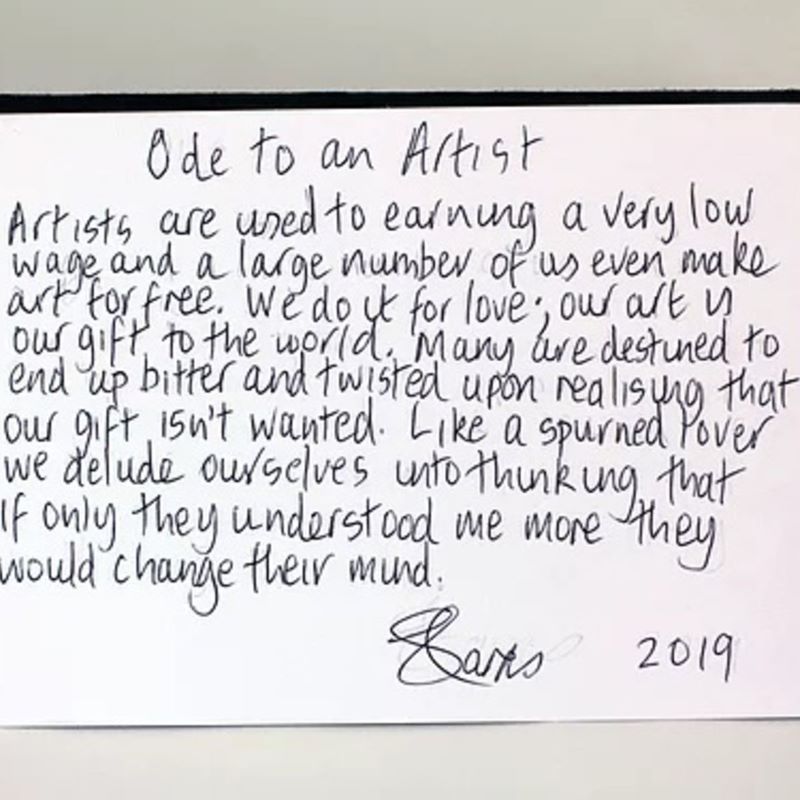 Ode to an Artist
Artists are used to earning a very low
wage and a large number of us even make
art for free. We do it for love; our art is
our gift to the world. Many are destined to
end up bitter and twisted upon realising that
our gift isn't wanted. Like a spurned lover
we delude ourselves into thinking that
if only they understood me more they
would change their mind.
2019